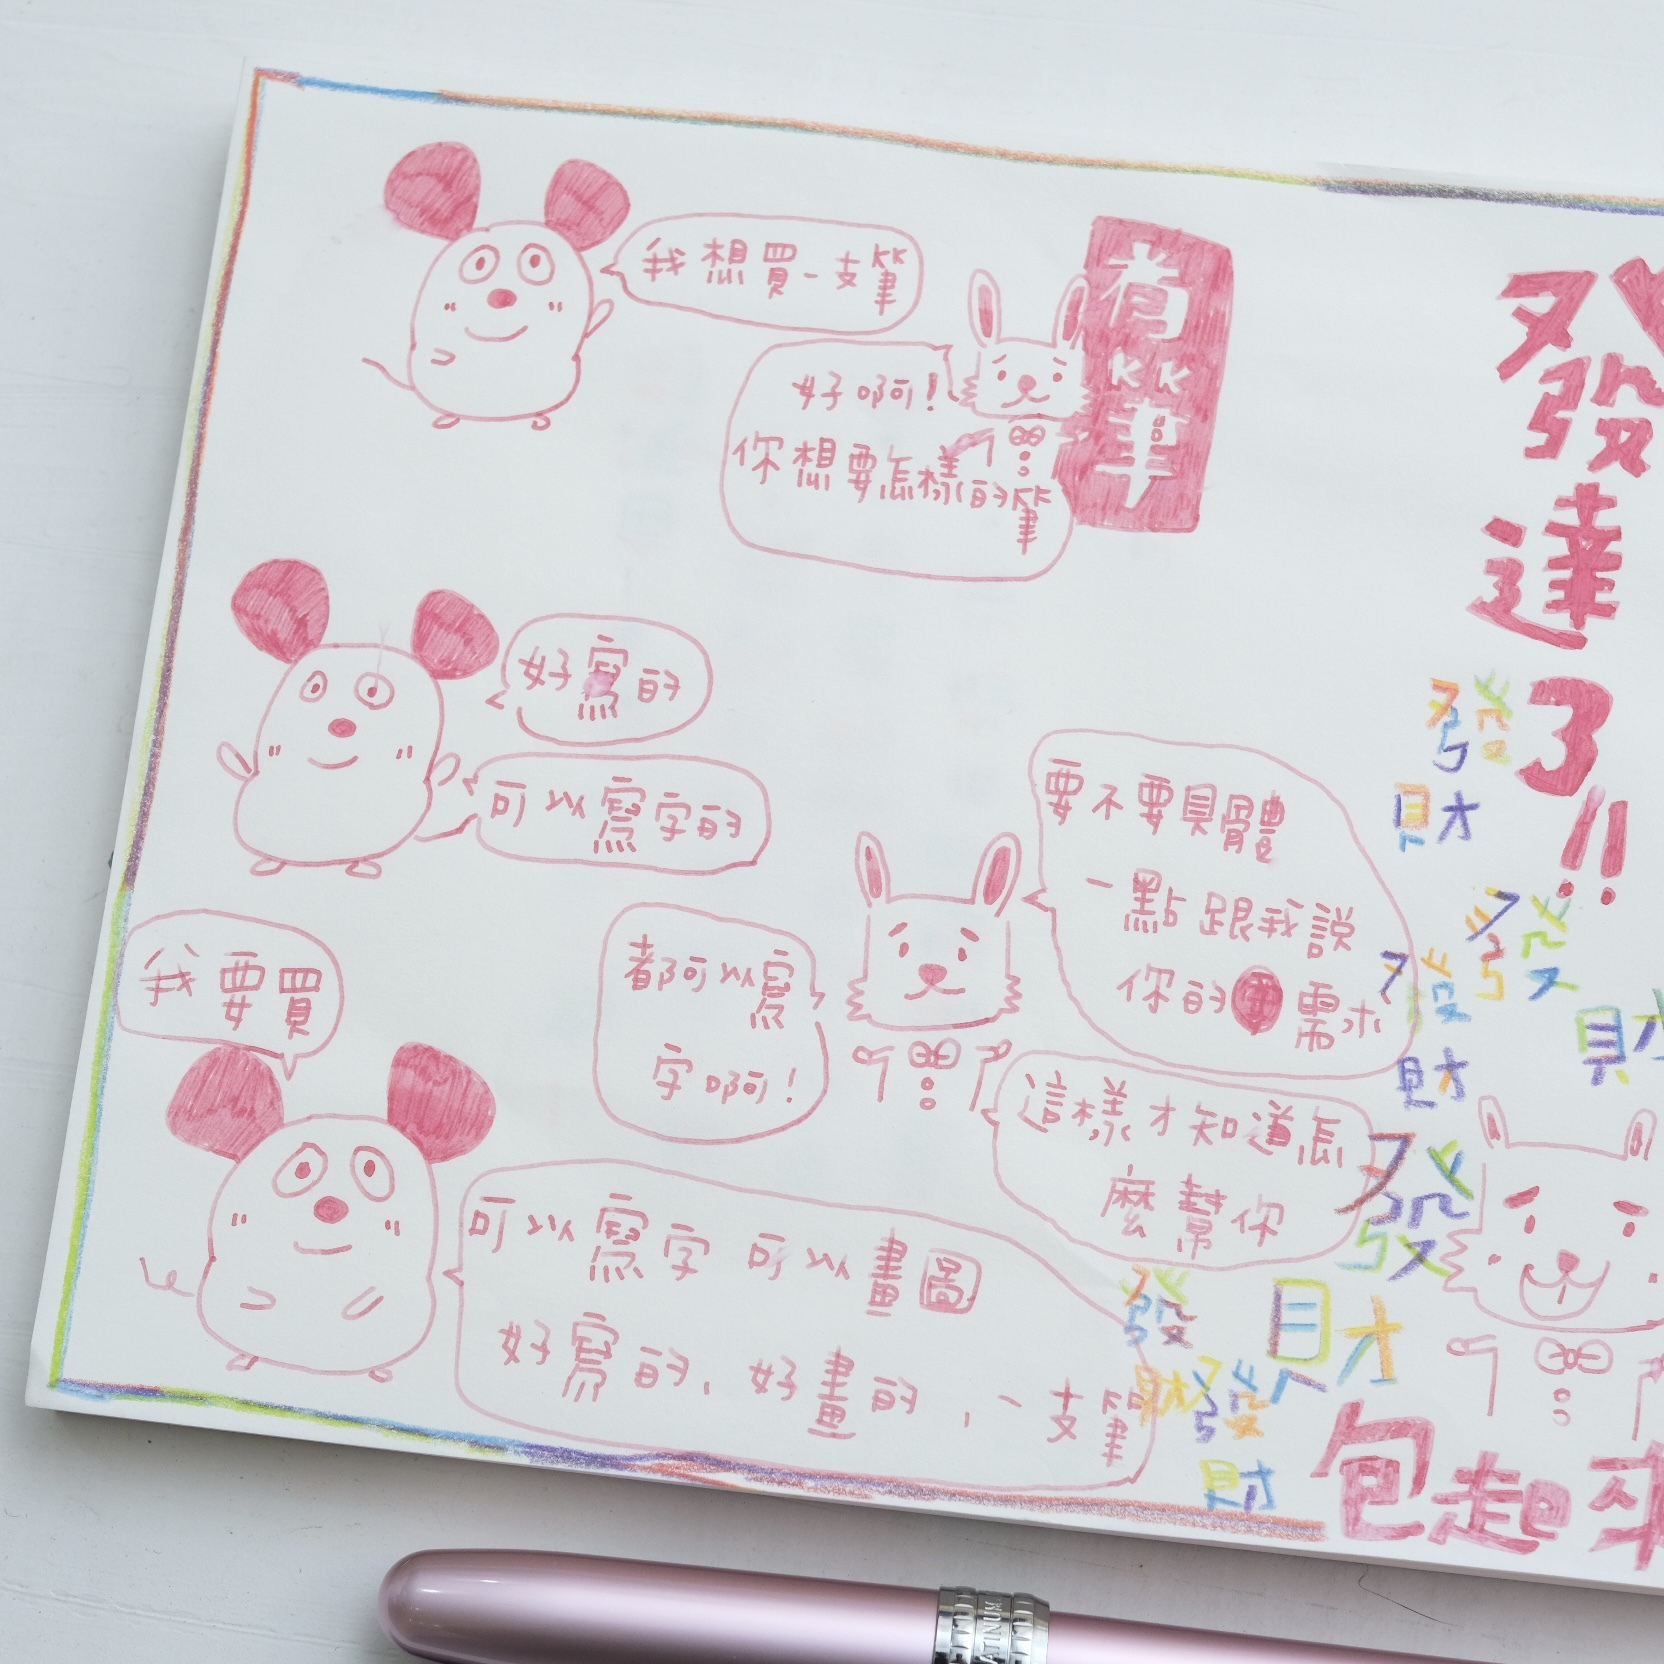 我想買一支筆
有筆
好啊!
你想要怎樣的筆
好寫的
可以寫字的
要不要具體
一點跟我說
你的需求
都可以寫
字啊!
這樣才知道怎
麼幫你
我要買
可以寫字 可以畫圖
好寫的、好畫的、一支筆
發達了!!
發財
發
發財
發財
發
發財
財
發財
包起來